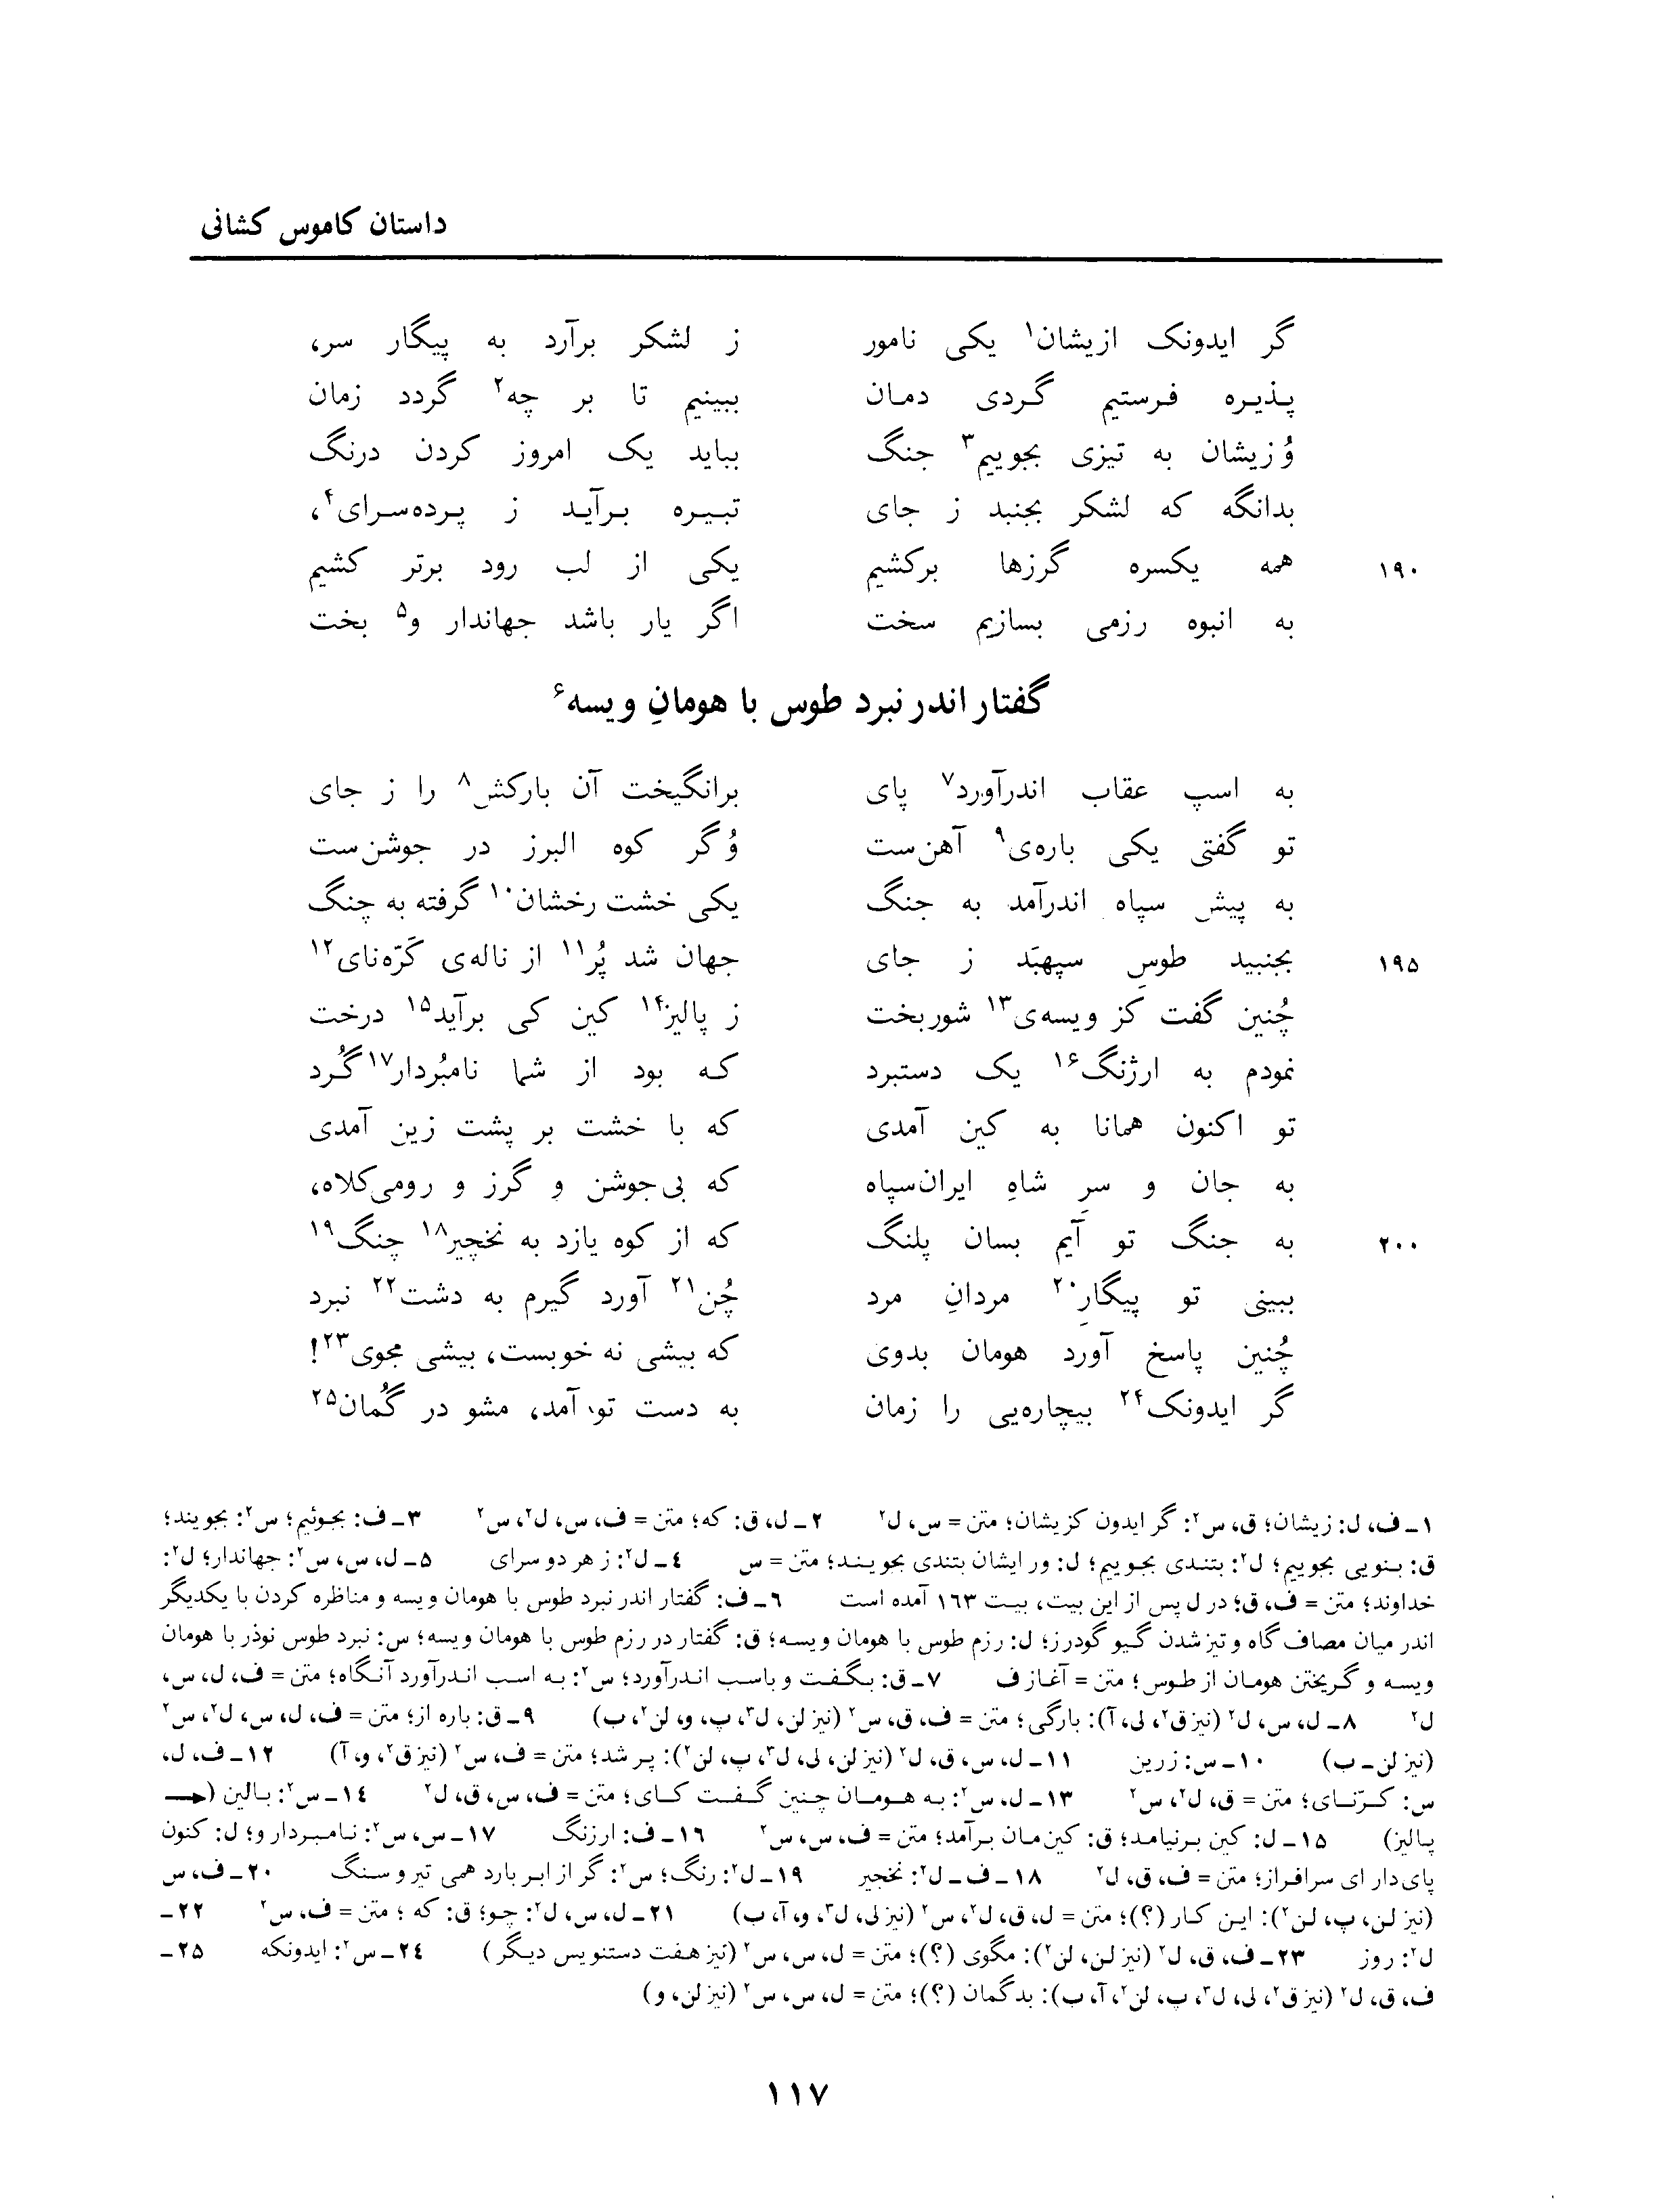 داستان کاموس کشانی
گر ایدونک ازیشان۱ یکی نامور ز لشکر برآرد به پیگار سر،
پذیره فرستیم گردی دمان ببینیم تا بر چه۲ گردد زمان
وُزیشان به تیزی بجوییم۳ جنگ بباید یک امروز کردن درنگ
بدانگه که لشکر بجنبد ز جای تبیره برآید ز پرده‌سرای۴،
۱۹۰ همه یکسره گرزها برکشیم یکی از لب رود برتر کشیم
به انبوه رزمی بسازیم سخت اگر یار باشد جهاندار و۵ بخت
گفتار اندر نبرد طوس با هومانِ ویسه۶
به اسپ عقاب اندرآورد۷ پای برانگیخت آن بارکش۸ را ز جای
تو گفتی یکی باره‌ی۹ آهن‌ست وُگر کوه البرز در جوشن‌ست
به پیش سپاه اندرآمد به جنگ یکی خشت رخشان۱۰ گرفته به چنگ
۱۹۵ بجنبید طوسِ سپهبَد ز جای جهان شد پُر۱۱ از ناله‌ی کَرّه‌نای۱۲
چُنین گفت کز ویسه‌ی۱۳ شوربخت ز پالیز۱۴ کین کی برآید۱۵ درخت
نمودم به ارژنگ۱۶ یک دستبرد که بود از شما نامبُردار۱۷ گُرد
تو اکنون همانا به کین آمدی که با خشت بر پشت زین آمدی
به جان و سرِ شاهِ ایران‌سپاه که بی‌جوشن و گرز و رومی‌کلاه،
۲۰۰ به جنگ تو آیم بسان پلنگ که از کوه یازد به نخچیر۱۸ چنگ۱۹
ببینی تو پیگارِ۲۰ مردانِ مرد چُن۲۱ آورد گیرم به دشت۲۲ نبرد
چُنین پاسخ آورد هومان بدوی که بیشی نه خوبست، بیشی مجوی۲۳!
گر ایدونک۲۴ بیچاره‌یی را زمان به دست تو آمد، مشو در گُمان۲۵
۱ــ ف، ل: زیشان؛ ق، س۲: گر ایدون کزیشان؛ متن = س، ل۲ ۲ــ ل، ق: که؛ متن = ف، س، ل۲، س۲ ۳ــ ف: بجوئیم؛ س۲: بجویند؛
ق: بنویی بجوییم؛ ل۲: بتندی بجوییم؛ ل: ور ایشان بتندی بجویند؛ متن = س ۴ــ ل۲: ز هر دو سرای ۵ــ ل، س، س۲: جهاندار؛ ل۲:
خداوند؛ متن = ف، ق؛ در ل پس از این بیت، بیت ۱۶۳ آمده است ۶ــ ف: گفتار اندر نبرد طوس با هومان ویسه و مناظره کردن با یکدیگر
اندر میان مصاف گاه و تیز شدن گیو گودرز؛ ل: رزم طوس با هومان ویسه؛ ق: گفتار در رزم طوس با هومان ویسه؛ س: نبرد طوس نوذر با هومان
ویسه و گریختن هومان از طوس؛ متن = آغاز ف ۷ــ ق: بگفت و باسب اندرآورد؛ س۲: به اسب اندرآورد آنگاه؛ متن = ف، ل، س،
ل۲ ۸ــ ل، س، ل۲ (نیز ق۲، لی، آ): بارگی؛ متن = ف، ق، س۲ (نیز لن، ل۳، پ، و، لن۲، ب) ۹ــ ق: باره از؛ متن = ف، ل، س، ل۲، س۲
(نیز لن ــ ب) ۱۰ــ س: زرین ۱۱ــ ل، س، ق، ل۲ (نیز لن، لی، ل۳، پ، لن۲): پر شد؛ متن = ف، س۲ (نیز ق۲، و، آ) ۱۲ــ ف، ل،
س: کرّنای؛ متن = ق، ل۲، س۲ ۱۳ــ ل، س۲: به هومان چنین گفت کای؛ متن = ف، س، ق، ل۲ ۱۴ــ س۲: بالین (←
پالیز) ۱۵ــ ل: کین برنیامد؛ ق: کین‌مان برآمد؛ متن = ف، س، س۲ ۱۶ــ ف: ارزنگ ۱۷ــ س، س۲: نامبردار و؛ ل: کنون
پای‌دار ای سرافراز؛ متن = ف، ق، ل۲ ۱۸ــ ف ــ ل۲: نخجیر ۱۹ــ ل۲: رنگ؛ س۲: گر از ابر بارد همی تیر و سنگ ۲۰ــ ف، س
(نیز لن، پ، لن۲): این کار (؟)؛ متن = ل، ق، ل۲، س۲ (نیز لی، ل۳، و، آ، ب) ۲۱ــ ل، س، ل۲: چو؛ ق: که؛ متن = ف، س۲ ۲۲ــ
ل۲: روز ۲۳ــ ف، ق، ل۲ (نیز لن، لن۲): مگوی (؟)؛ متن = ل، س، س۲ (نیز هفت دستنویس دیگر) ۲۴ــ س۲: ایدونکه ۲۵ــ
ف، ق، ل۲ (نیز ق۲، لی، ل۳، پ، لن۲، آ، ب): بدگمان (؟)؛ متن = ل، س، س۲ (نیز لن، و)
۱۱۷